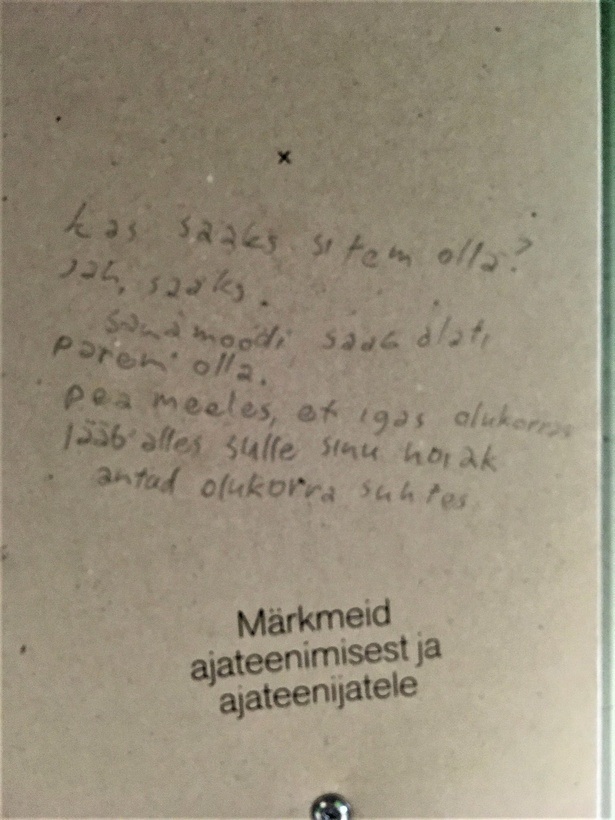 x
kas saaks sitem olla?
jah, saaks.
samamoodi saab alati
parem olla.
pea meeles, et igas olukorras
jääb alles sulle sinu hoiak
antud olukorra suhtes
Märkmeid
ajateenimisest ja
ajateenijatele